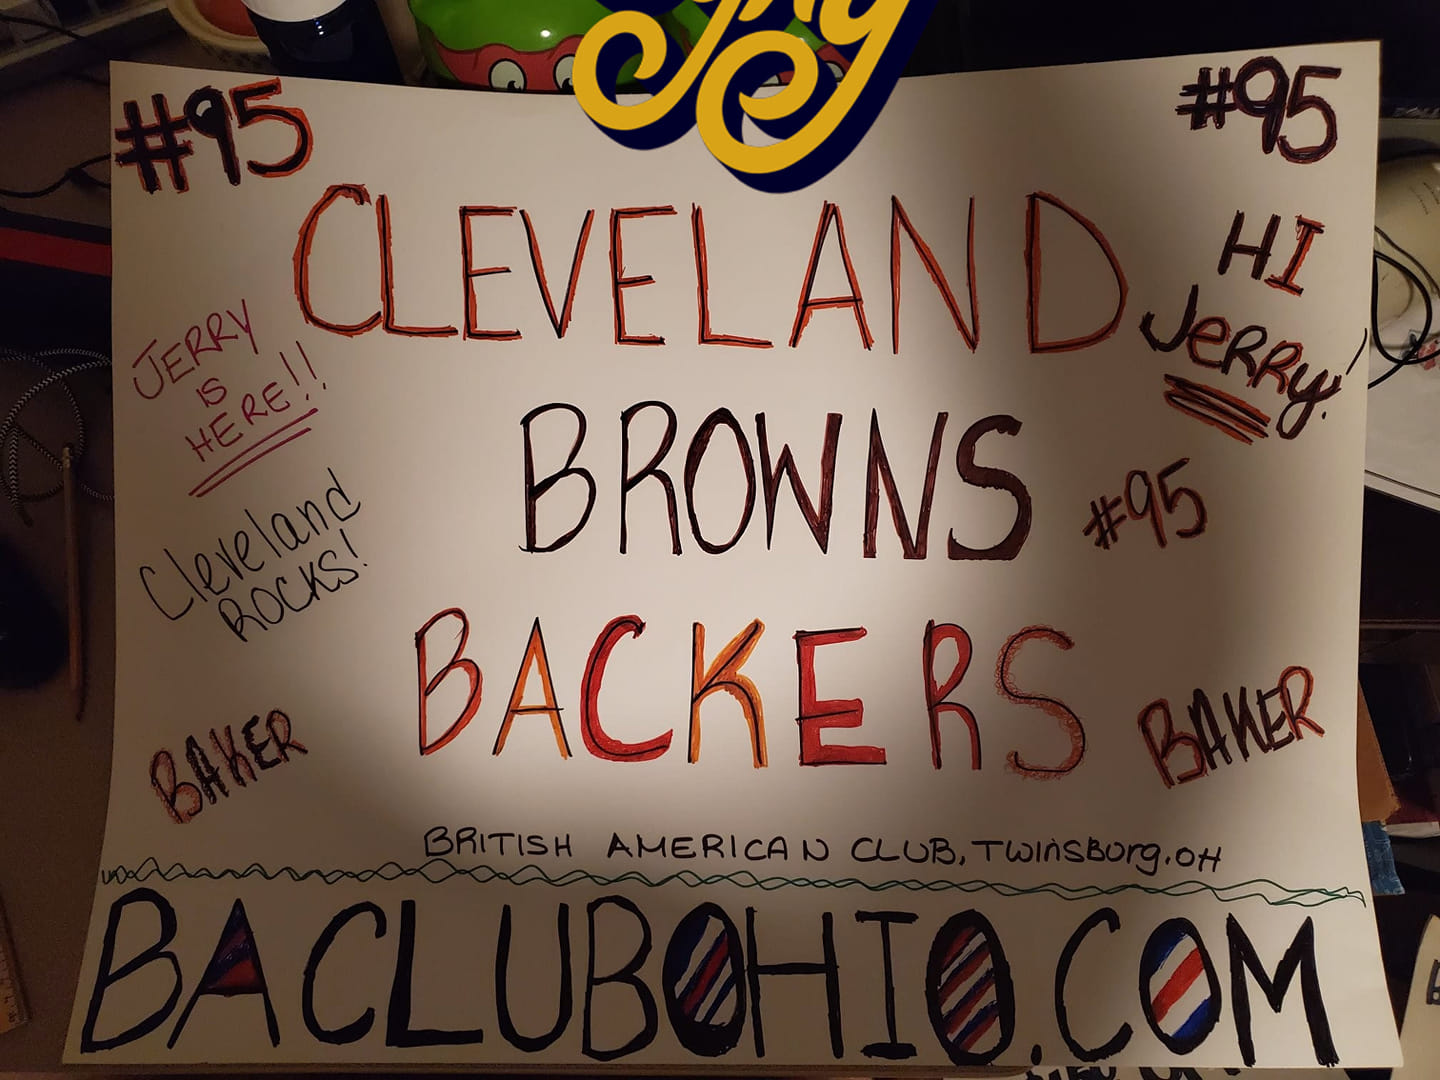 #95
#95
CLEVELAND
HI
JERRY!
JERRY
IS
HERE!!
BROWNS
#95
Cleveland
ROCKS!
BACKERS
BAKER
BAKER
BRITISH AMERICAN CLUB, TWINSBURG, OH
BACLUBOHIO.COM